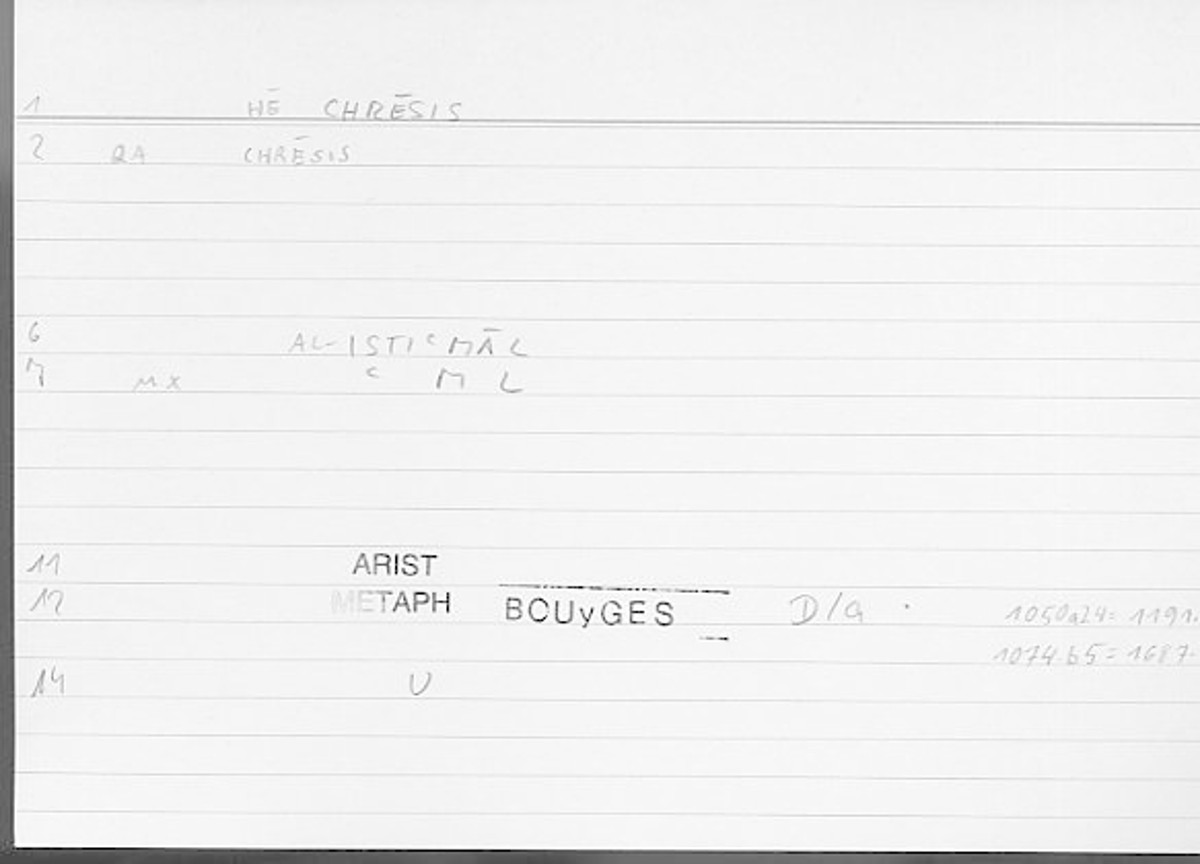 1 HĒ CHRĒSIS
2 QA CHRĒSIS
6 AL-ISTIʿMĀL
7 MX ʿ M L
11 ARIST
12 METAPH BOUyGES D/G . 1050a24= 1191.
1074.b5= 1687.
14 U